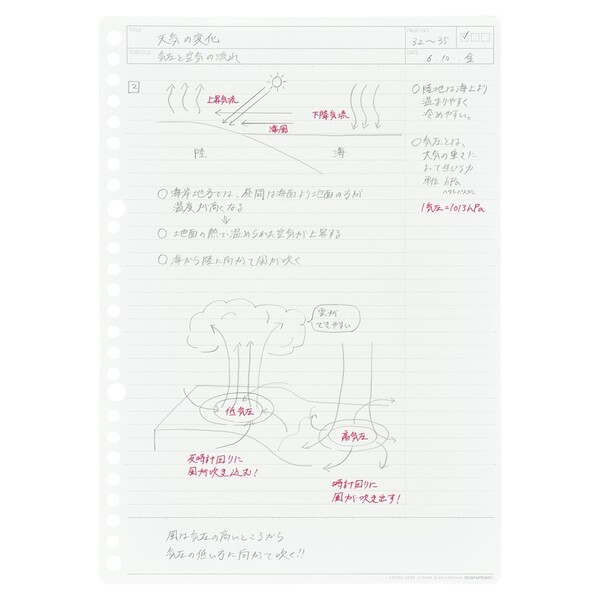 TITLE
天気の変化
PAGE NO.
32〜35
SUBTITLE
気圧と空気の流れ
DATE
6.10.金
2
上昇気流
下降気流
海風
陸
海
○ 海岸地方では、昼間は海面より地面の方が
温度が高くなる
⇓
○ 地面の熱で温められた空気が上昇する
○ 海から陸に向かって風が吹く
雲が
できやすい
低気圧
高気圧
反時計回りに
風が吹き込む!
時計回りに
風が吹き出す!
○ 陸地は海上より
温まりやすく
冷めやすい。
○ 気圧とは、
大気の重さに
よって生じる力
単位 hPa
ヘクトパスカル
1気圧=1013hPa
風は気圧の高いところから
気圧の低い方に向かって吹く!!
maruman